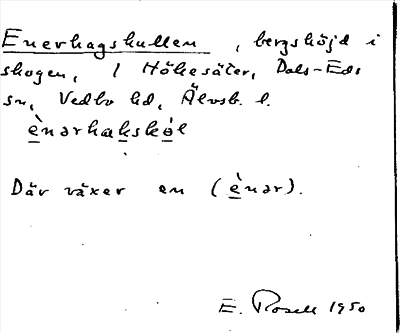 Enerhagskullen, bergshöjd i
skogen, 1 Hökesäter, Dals-Eds
sn, Vedbo hd, Älvsb. l.
è̲nərhaks̲kò̲l
Där växer en (è̲nər).
E. Rosell 1950